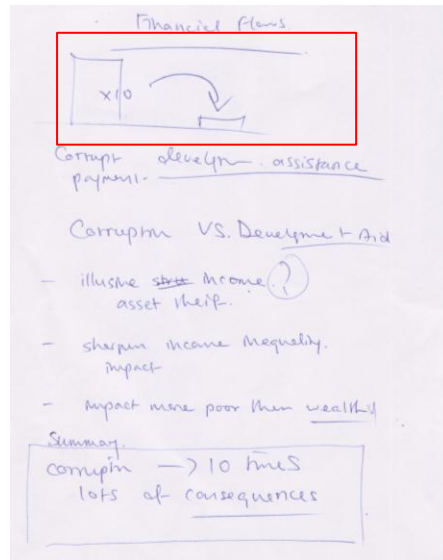 Financial Flows
x10
Corrupt develpm. assistance
payment.
Corruption VS. Development Aid
- illusive income ?
asset theft.
- sharpen income inequality.
impact
- impact more poor then wealthy
Summary.
corruptn -> 10 times
lots of consequences